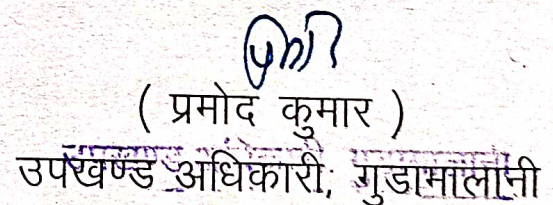 ( प्रमोद कुमार )
उपखण्ड अधिकारी, गुडामालानी